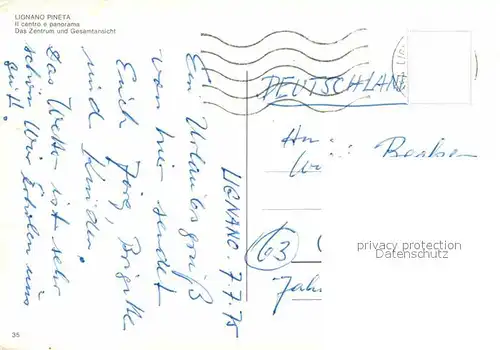 LIGNANO PINETA
Il centro e panorama
Das Zentrum und Gesamtansicht
LIGNANO. 7.7.75
Ein Urlaubsgruß
von hier sendet
Euch Jörg, Brigitte
und Kinder.
Das Wetter ist sehr
schön. Wir erholen uns
gut!
DEUTSCHLAND
63
privacy protection
www.ansichtskartenversand.com
35